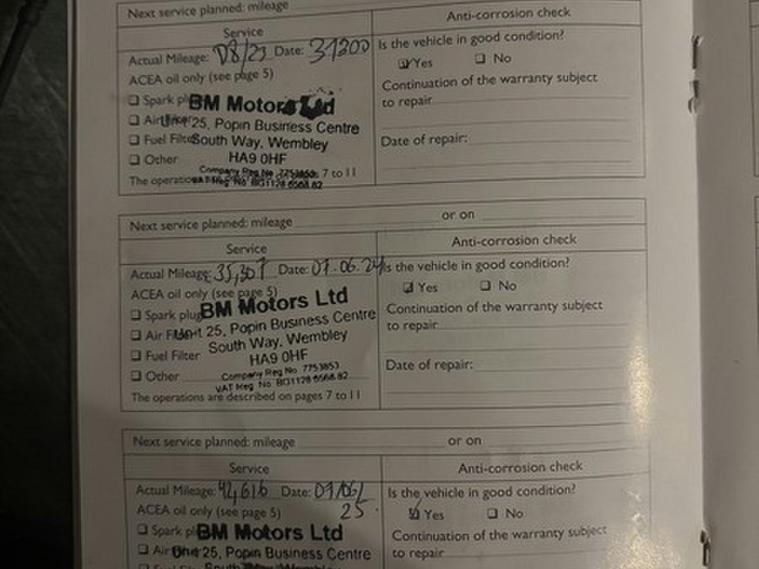 Next service planned: mileage
Service
Anti-corrosion check
Actual Mileage: 08/23 Date: 31200
Is the vehicle in good condition?
Yes No
ACEA oil only (see page 5)
Continuation of the warranty subject
to repair
Spark plug
BM Motors Ltd
Air Filter
Unit 25, Popin Business Centre
Fuel Filter
South Way, Wembley
Date of repair:
Other
HA9 0HF
Company Reg No 7753853
VAT Reg No BG1128 6568 82
The operations 7 to 11
Next service planned: mileage or on
Service
Anti-corrosion check
Actual Mileage: 35,307 Date: 07.06.24
Is the vehicle in good condition?
Yes No
ACEA oil only (see page 5)
Continuation of the warranty subject
to repair
Spark plug
BM Motors Ltd
Air Filter
Unit 25, Popin Business Centre
Fuel Filter
South Way, Wembley
HA9 0HF
Date of repair:
Other
Company Reg No 7753853
VAT Reg No BG1128 6568 82
The operations are described on pages 7 to 11
Next service planned: mileage or on
Service
Anti-corrosion check
Actual Mileage: 42,616 Date: 07/06/
25
Is the vehicle in good condition?
Yes No
ACEA oil only (see page 5)
Continuation of the warranty subject
to repair
Spark pl
BM Motors Ltd
Air
Unit 25, Popin Business Centre